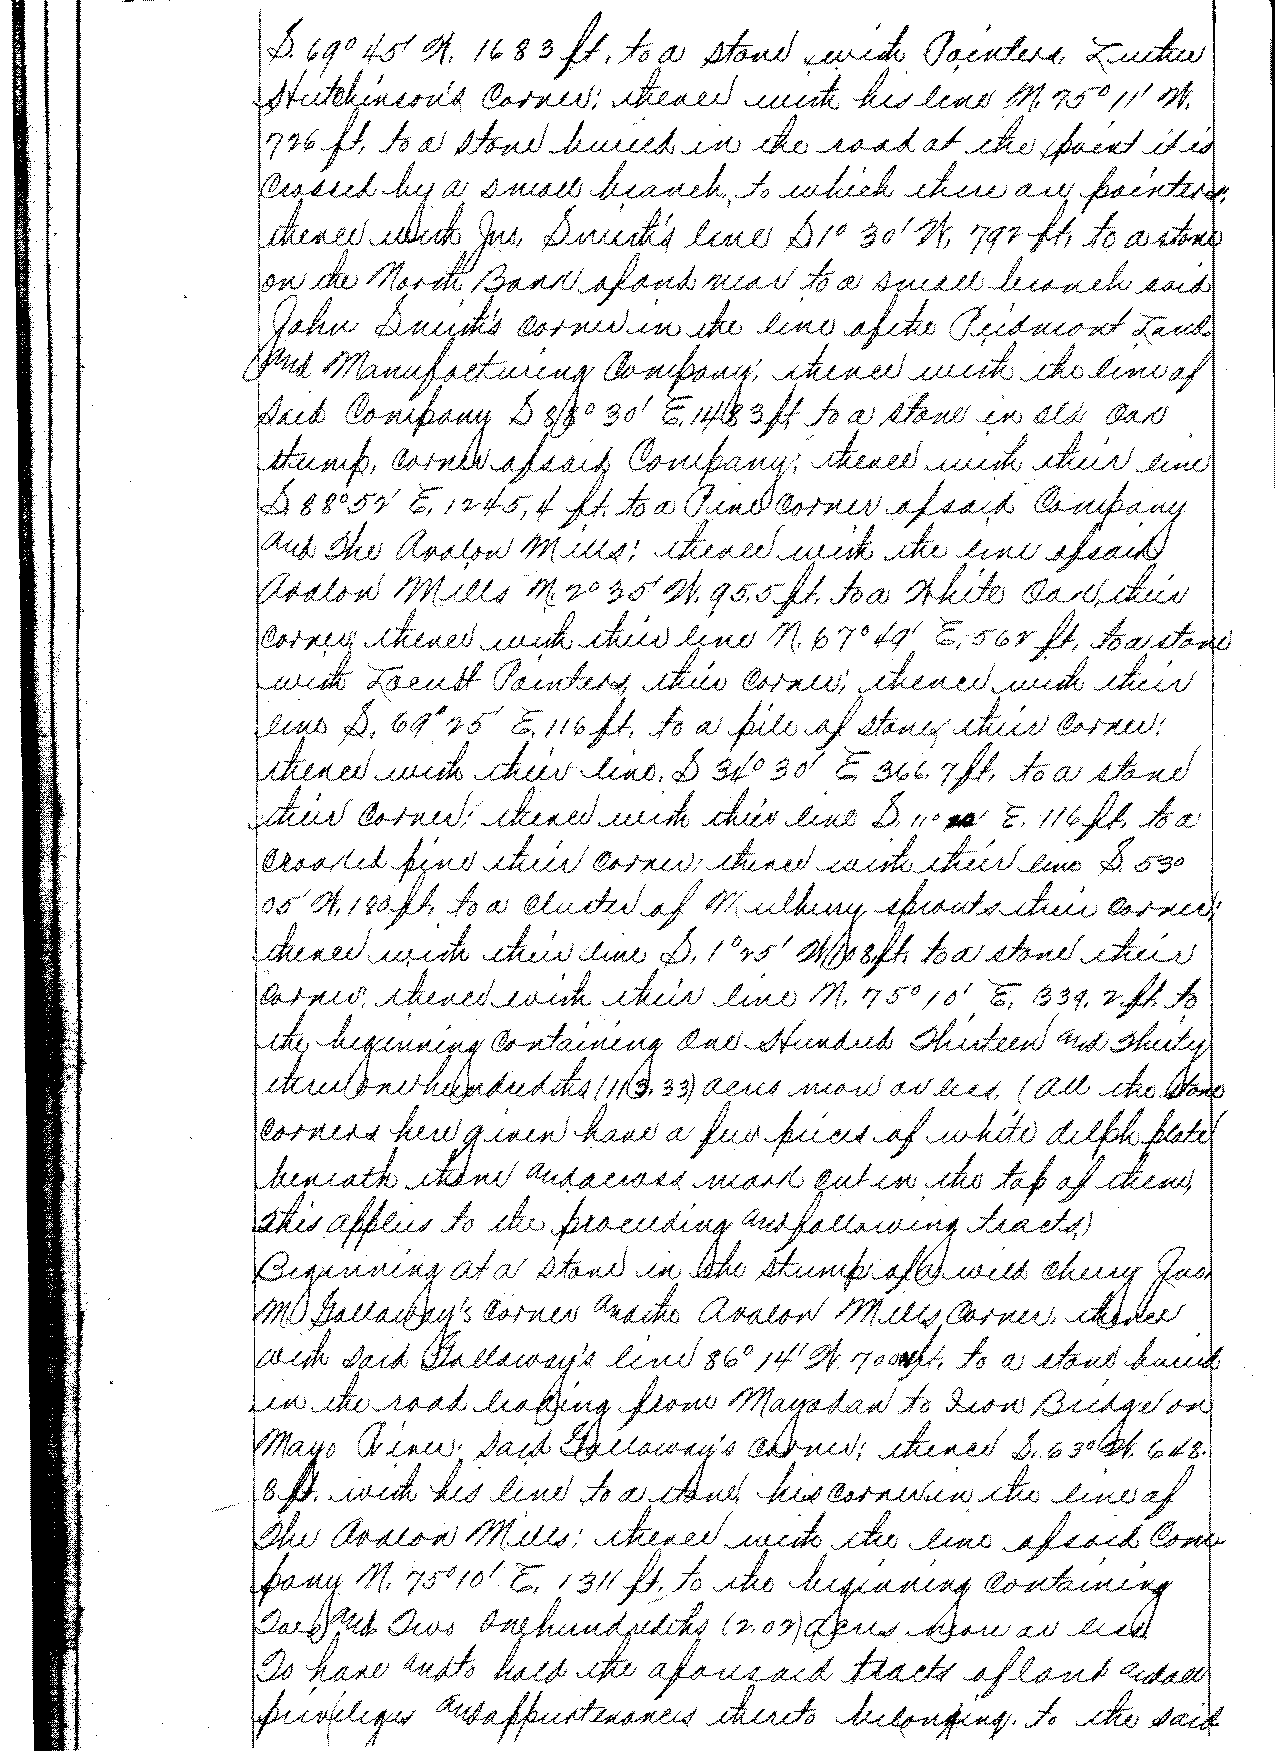 S. 69° 45' W. 1683 ft. to a stone with Pointers, Luther
Hutchinson's Corner; thence with his line N. 75° 11' W.
726 ft. to a stone buried in the road at the point it is
crossed by a small branch, to which there are pointers;
thence with Jno. Smith's line S 1° 30' W. 792 ft. to a stone
on the North Bank of and near to a small branch said
John Smith's corner in the line of the Piedmont Land
and Manufacturing Company; thence with the line of
said Company S 88° 30' E. 1483 ft to a stone in old Oak
stump, corner of said Company; thence with their line
S. 88° 52' E. 1245,4 ft. to a Pine Corner of said Company
and The Avalon Mills; thence with the line of said
Avalon Mills N. 2° 35' W. 95.5 ft. to a White Oak, their
corner; thence with their line N. 67° 49' E. 562 ft. to a stone
with Locust Pointers, their corner; thence with their
line S. 69° 25' E. 116 ft. to a pile of stone, their corner;
thence with their line, S 34° 30' E 366.7 ft. to a stone
their corner; thence with their line S. 11° E. 116 ft. to a
crooked pine their corner; thence with their line S. 53°
05' W. 180 ft. to a cluster of Mulberry sprouts their corner;
thence with their line S. 1° 25' W. 108 ft. to a stone their
corner; thence with their line N. 75° 10' E. 339.2 ft. to
the beginning containing One Hundred Thirteen and Thirty
three one hundredths (113.33) acres more or less. (All the stone
corners here given have a few pieces of white delph plate
beneath them and a cross mark cut in the top of them,
This applies to the preceeding and following tracts)
Beginning at a stone in the stump of a wild cherry Jno.
M Gallaway's corner and the Avalon Mills, Corner, thence
with said Gallaway's line 86° 14' W. 700 ft. to a stone buried
in the road leading from Mayodan to Iron Bridge on
Mayo River; said Gallaway's corner; thence S. 63° W. 648.
8 ft. with his line to a stone, his corner in the line of
The Avalon Mills; thence with the line of said Com
pany N. 75° 10' E. 1311 ft. to the beginning containing
Two and Two One hundredths (2.02) Acres more or less.
To have and to hold the aforesaid tracts of land and all
privileges and appurtenances thereto belonging. to the said